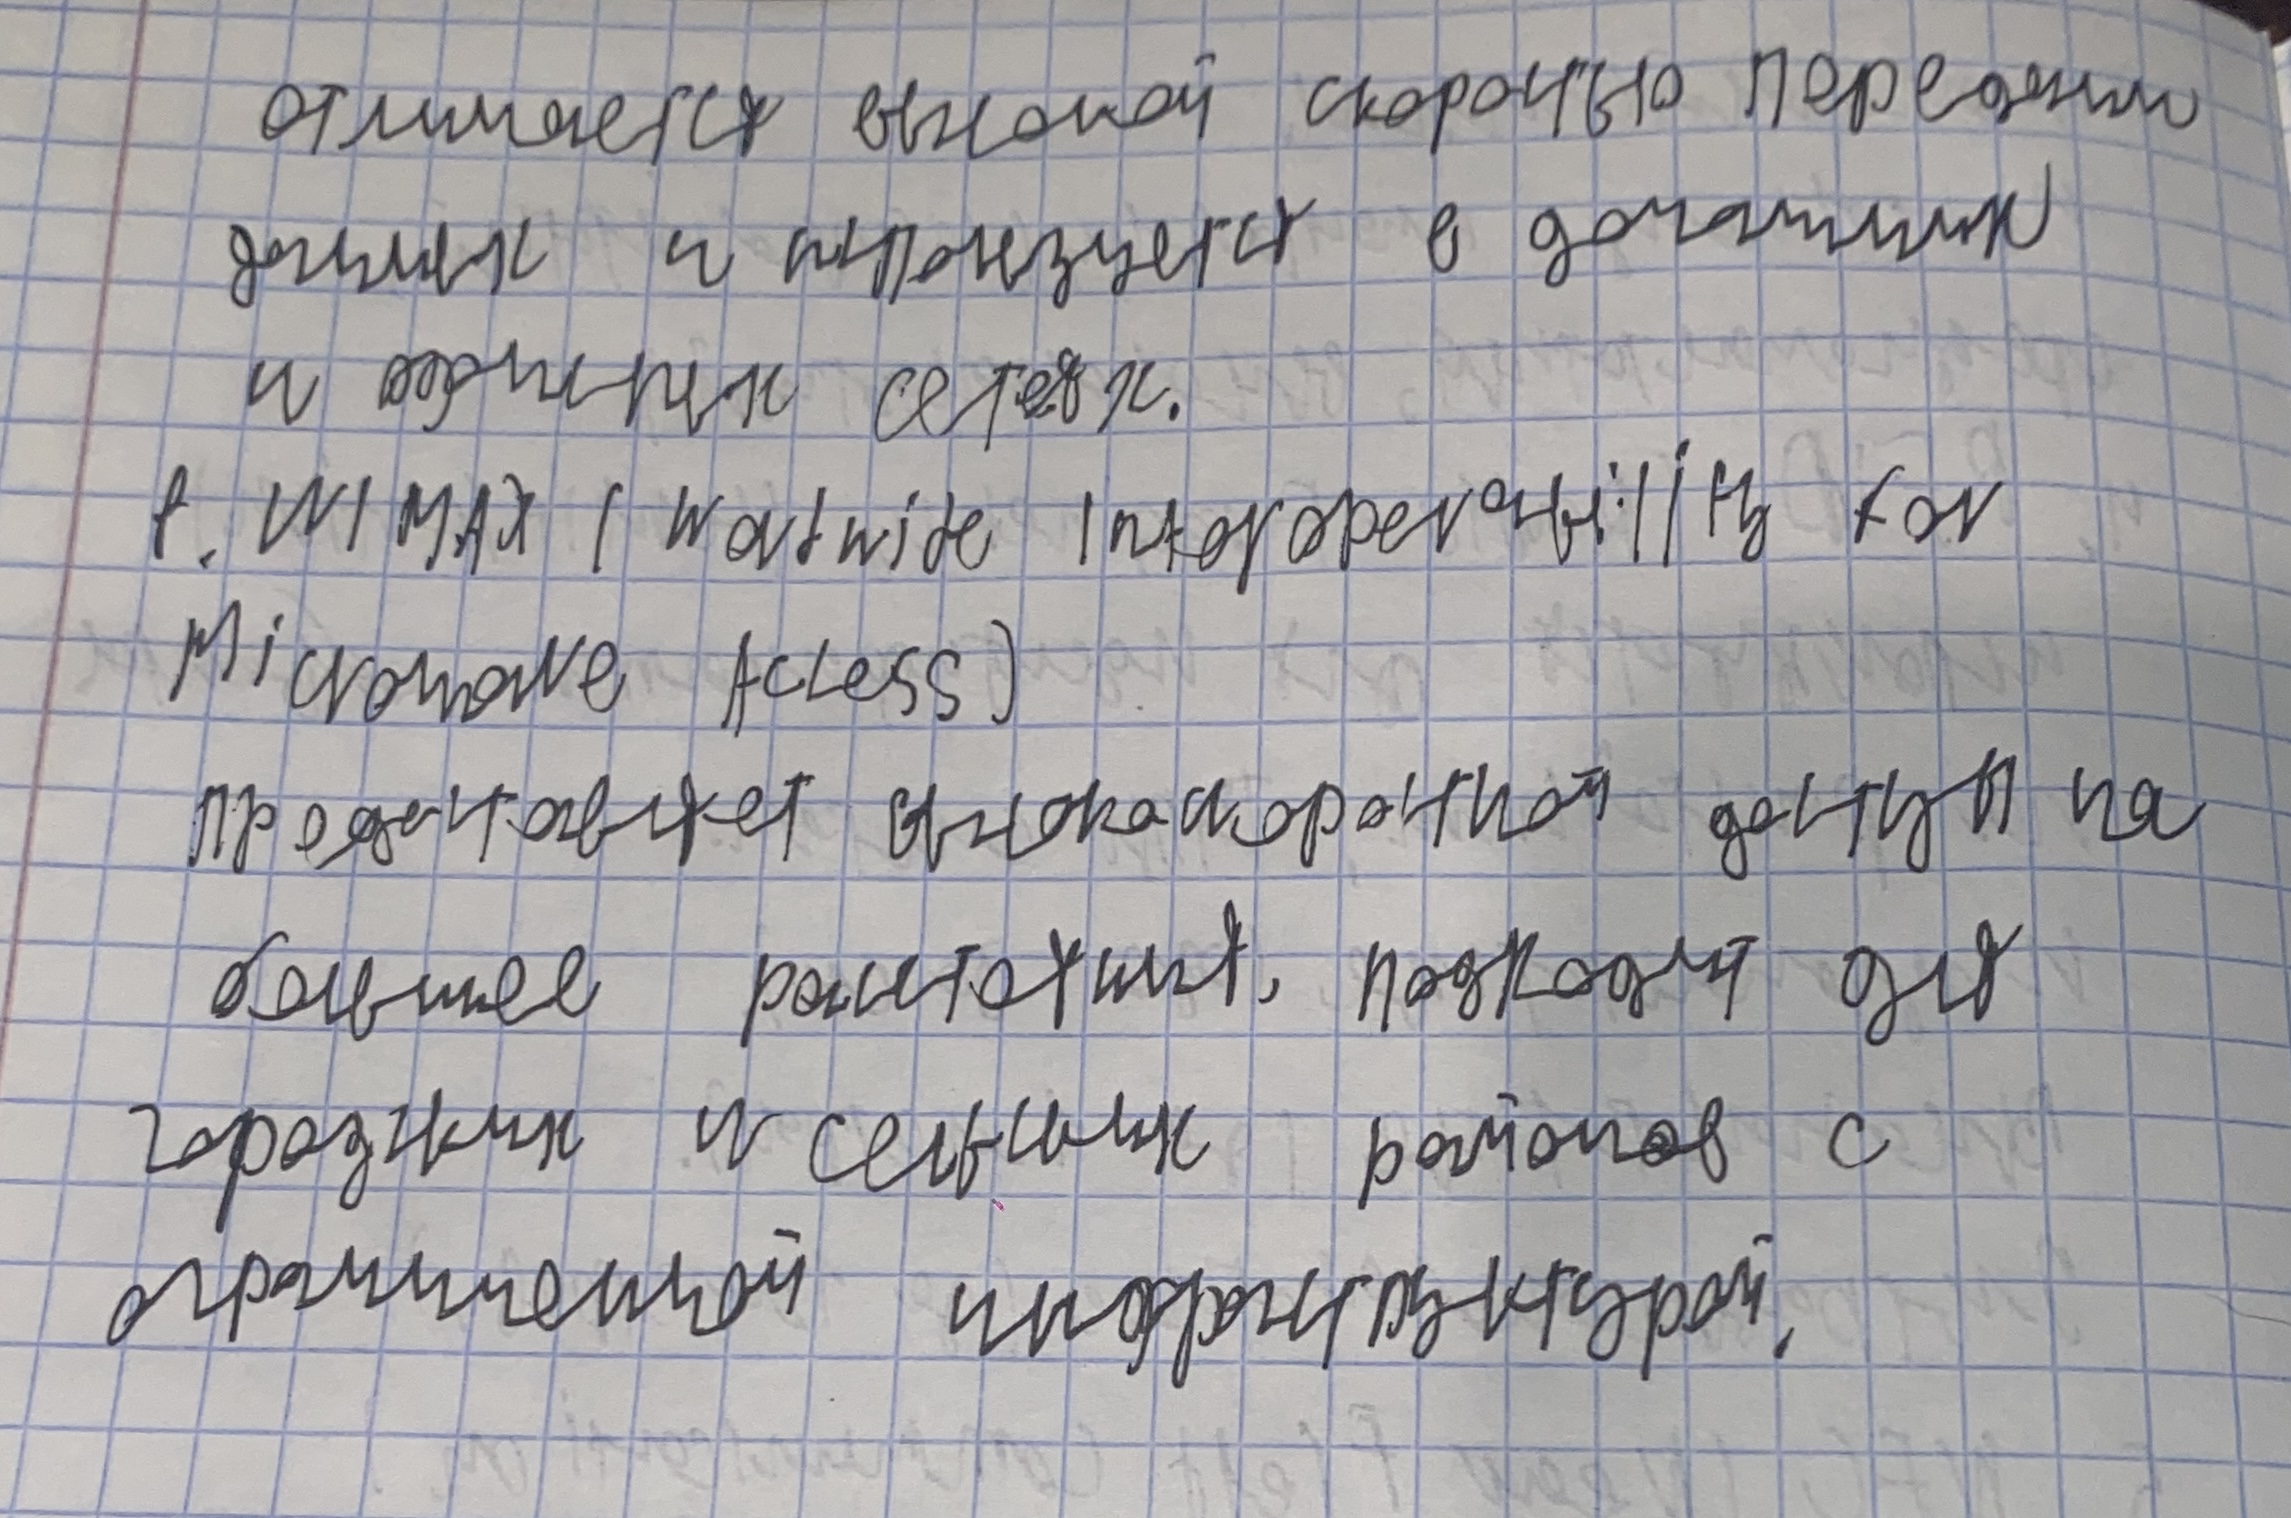 отличается высокой скоростью передачи
данных и используется в домашних
и сетях.
WIMAX (Worldwide Interoperability for
Microwave Access)
предоставляет высокоскоростной доступ на
большее расстояния, подходит для
городских и сельских районов с
ограниченной инфраструктурой.